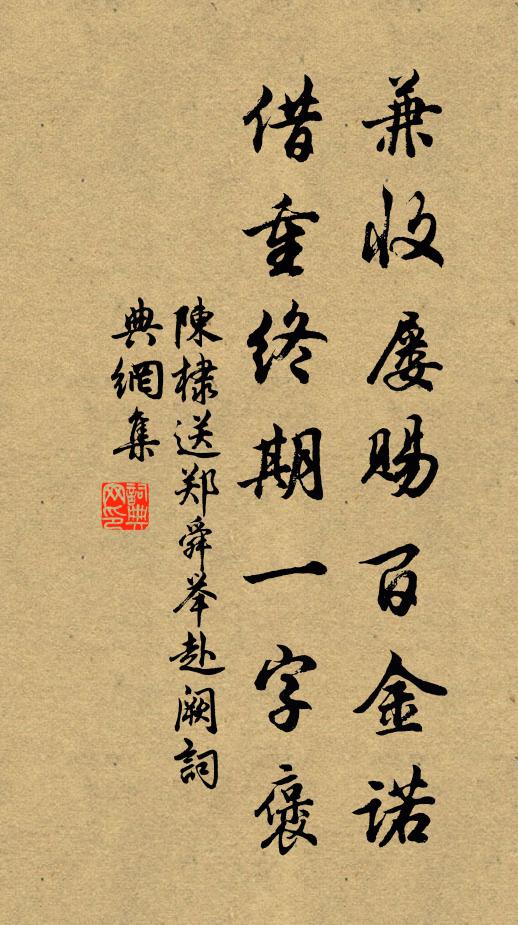 兼收屡賜百金諾
借重終期一字褒
陳棣送郑舜举赴阙詞
典網集
詞典网印